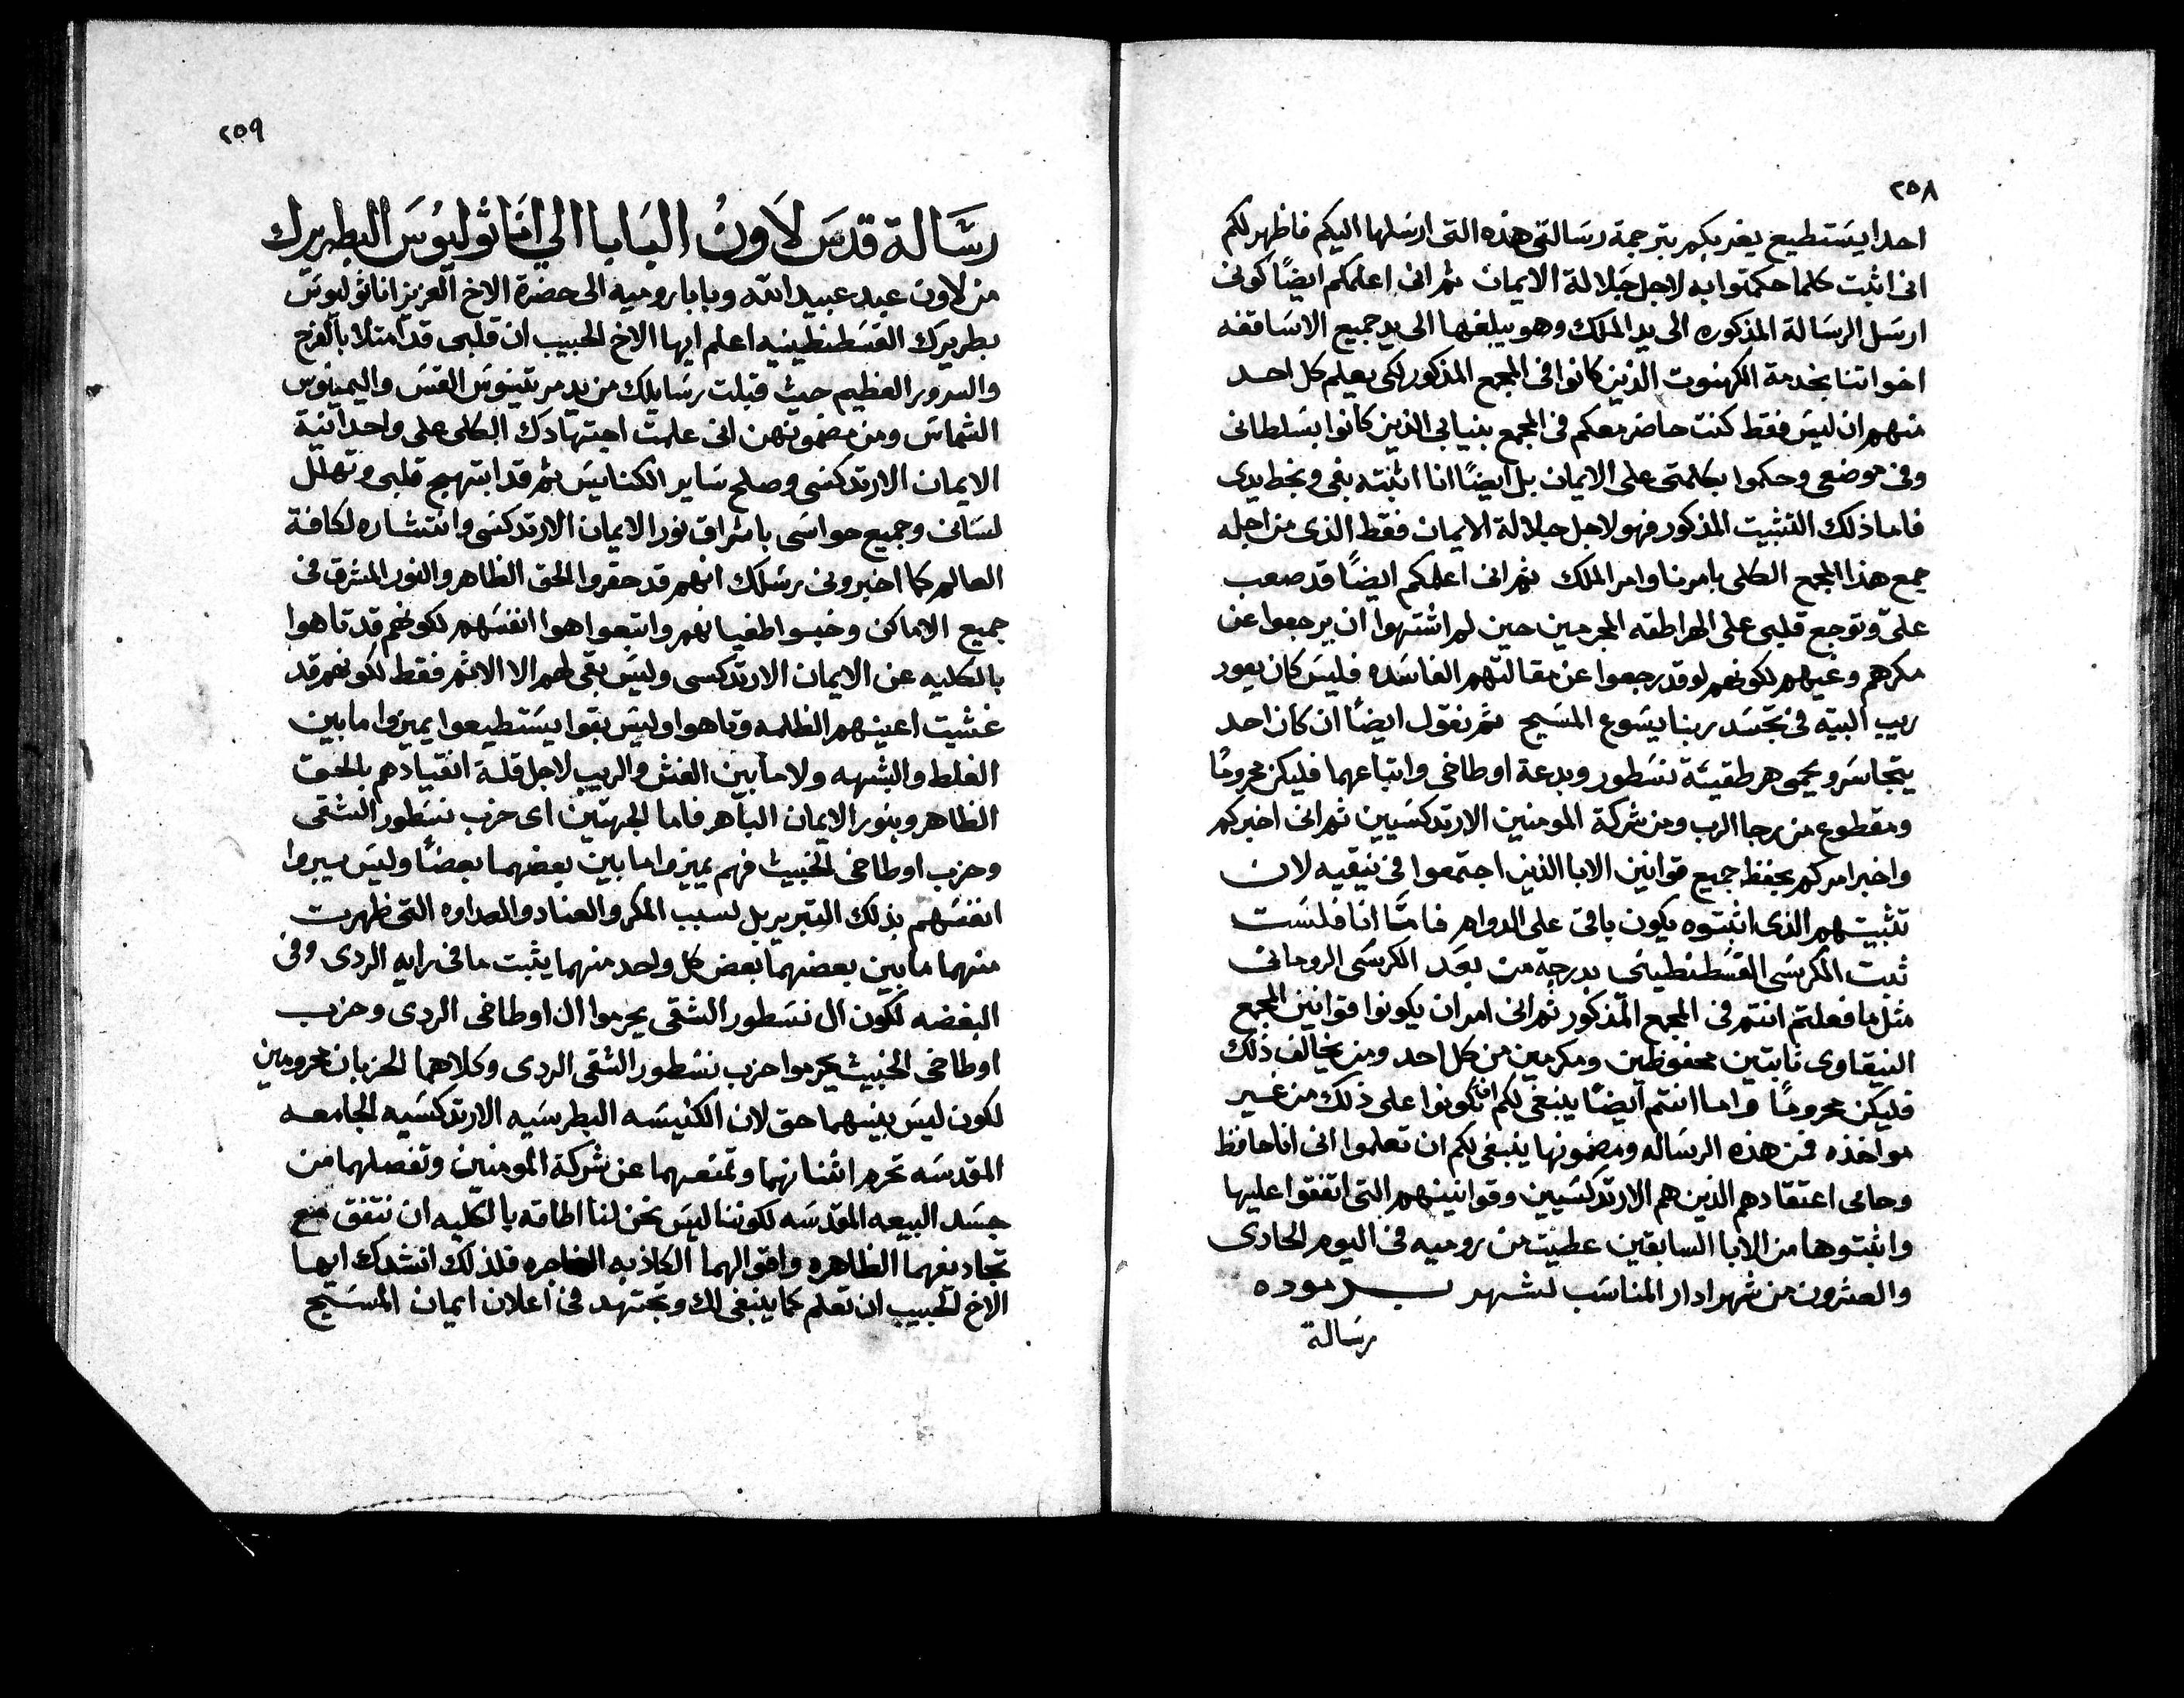 ٢٥٨
احدا يستطيع يغربكم بترجمة رسالتى هذه التى ارسلها اليكم فاظهر لكم
انى اثبت كلما حكمتوا به لاجل جلالة الايمان ثم انى اعلمكم ايضًا كونى
ارسل الرسالة المذكوره الى يد الملك وهو يبلغها الى يد جميع الاساقفه
اخواتنا بخدمة الكهنوت الذين كانوا فى المجمع المذكور لكى يعلم كل احد
منهم ان ليس فقط كنت حاضر معكم فى المجمع بنيابى الذين كانوا بسلطانى
وفى موضعى وحكموا بكلمتى على الايمان بل ايضًا انا اثبته بفى وبخط يدى
فاما ذلك التثبيت المذكور فهو لاجل جلالة الايمان فقط الذى من اجله
جمع هذا المجمع الكلى بامرنا وامر الملك ثم انى اعلمكم ايضًا قد صعب
علىّ وتوجع قلبى على الهراطقه المجرمين حين لم اشتهوا ان يرجعوا عن
مكرهم وغيهم لكونهم لو قد رجعوا عن مقالتهم الفاسده فليس كان يعود
ريب البتة فى تجسد ربنا يسوع المسيح ثم نقول ايضًا ان كان احد
يتجاسر ويحمى هرطقيئة نسطور وبدعة اوطاخى واتباعهما فليكن محرومًا
ومقطوع من رجا الرب ومن شركة المومنين الارتدكسيين ثم انى اخبركم
واخبر امركم بحفظ جميع قوانين الابا الذين اجتمعوا فى نيقيه لان
تثبيتهم الذى اثبتوه يكون باقى على الدوام فامّا انا فلست
ثبت الكرسى القسطنطينى بدرجة من بعد الكرسى الرومانى
مثل ما فعلتم انتم فى المجمع المذكور ثم انى امر ان يكونوا قوانين المجمع
النيقاوى ثابتين محفوظين ومكرمين من كل احد ومن يخالف ذلك
فليكن محرومًا واما انتم ايضًا ينبغى لكم ان تكونوا على ذلك من غير
مواخذه فمن هذه الرساله ومضمونها ينبغى لكم ان تعلموا انى انا حافظ
وحامى اعتقادهم الذين هم الارتدكسيين وقوانينهم التى اتفقوا عليها
واثبتوها من الابا السابقين عطيت من روميه فى اليوم الحادى
والعشرون من شهر ادار المناسب لشهر برموده
رسالة
٢٥٩
رسالة قدس لاون البابا الى اناثوليوس البطريرك
من لاون عبد عبيد الله وبابا روميه الى حضرة الاخ العزيز اناثوليوس
بطريرك القسطنطينيه اعلم ايها الاخ الحبيب ان قلبى قد امتلا بالفرح
والسرور العظيم حيث قبلت رسايلك من يد مرتينوس القس واليمينوس
الشماس ومن مضمونهن انى علمت اجتهادك الكلى على واحدانية
الايمان الارتدكسى وصلح ساير الكنايس ثم قد ابتهج قلبى وتهلل
لسانى وجميع حواسى باشراق نور الايمان الارتدكسى وانتشاره لكافة
العالم كما اخبرونى رسلك انهم قد حقروا الحق الظاهر والنور المشرق فى
جميع الاماكن وخبسوا طغيانهم واتبعوا هوا انفسهم لكونهم قد تاهوا
بالكليه عن الايمان الارتدكسى وليس بقى لهم الا الاثم فقط لكونهم قد
غشيت اعينهم الظلمه وتاهوا وليس بقوا يستطيعوا يميزوا ما بين
الغلط والشبهه ولا ما بين الغش والريب لاجل قلة انقيادهم بالحق
الظاهر وبنور الايمان الباهر فاما الجهتين اى حزب نسطور الشقى
وحزب اوطاخى الخبيث فهم يميزوا ما بين بعضهما بعضًا وليس يبروا
انفسهم بذلك التبرير بل لسبب المكر والعناد والعداوه التى ظهرت
منهما ما بين بعضهما بعض كل واحد منهما يثبت ما فى رايه الردى وفى
البغضه لكون ال نسطور الشقى يحرموا ال اوطاخى الردى وحزب
اوطاخى الخبيث يحرموا حزب نسطور الشقى الردى وكلاهما الحزبان محرومين
لكون ليس بينهما حق لان الكنيسه البطرسيه الارتدكسيه الجامعه
المقدسه تحرم اثنانهما وتمنعهما عن شركة المومنين وتفصلهما من
جسد البيعه المقدسه لكوننا ليس نحن لنا اطاقه بالكليه ان نتفق مع
تجاديفهما الظاهره واقوالهما الكاذبه الفاجره فلذلك انشدك ايها
الاخ الحبيب ان تعلم كما ينبغى لك وتجتهد فى اعلان ايمان المسيح